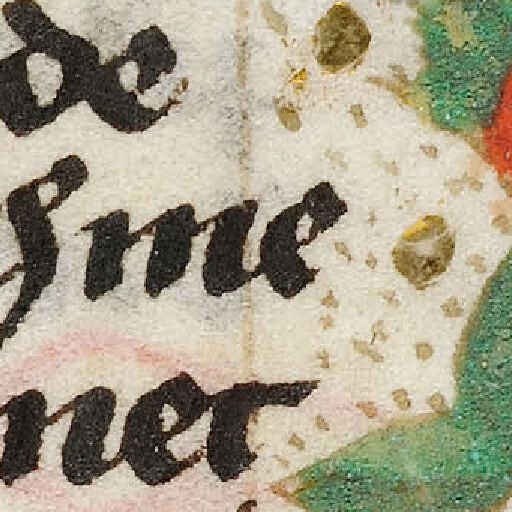 de
sme
ner